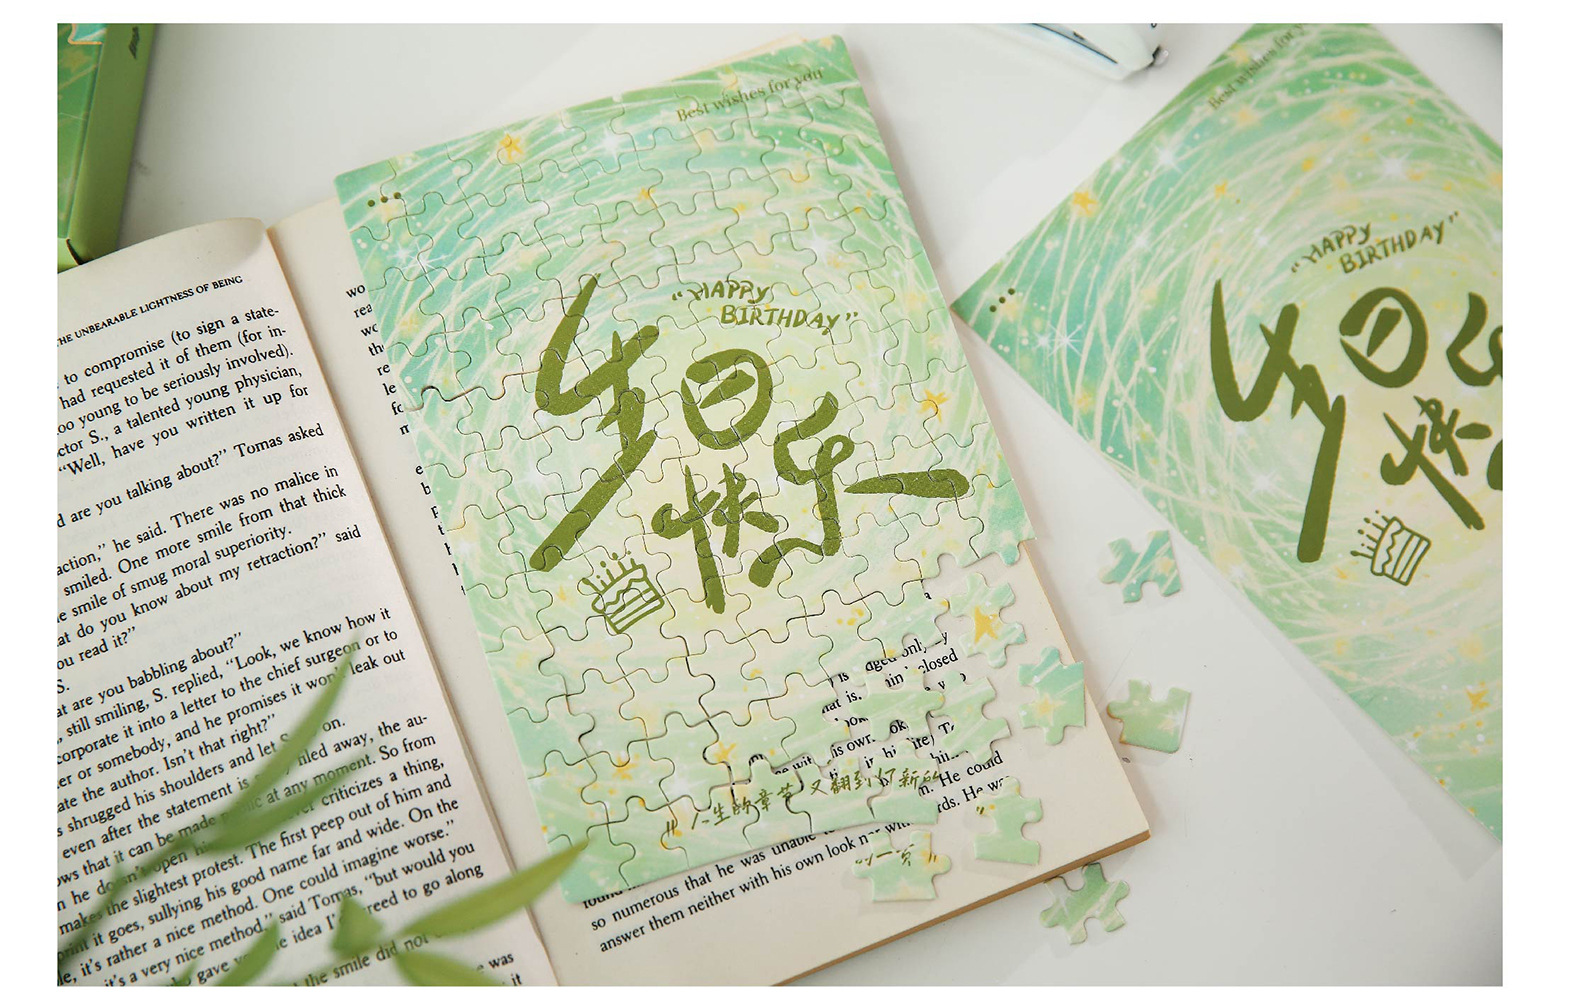 THE UNBEARABLE LIGHTNESS OF BEING
to compromise (to sign a state-
had requested it of them (for in-
oo young to be seriously involved).
ctor S., a talented young physician,
"Well, have you written it up for
d are you talking about?" Tomas asked
action," he said. There was no malice in
smiled. One more smile from that thick
e smile of smug moral superiority.
at do you know about my retraction?" said
ou read it?"
S.
at are you babbling about?"
, still smiling, S. replied, "Look, we know how it
corporate it into a letter to the chief surgeon or to
er or somebody, and he promises it won't leak out
ate the author. Isn't that right?"
s shrugged his shoulders and let S. on.
even after the statement is filed away, the au-
ows that it can be made public at any moment. So from
n he doesn't open his criticizes a thing,
makes the slightest protest. The first peep out of him and
print it goes, sullying his good name far and wide. On the
le, it's rather a nice method. One could imagine worse."
it's a very nice method," said Tomas, "but would you
who gave the idea I'd agreed to go along
the smile did not
was
it
Best wishes for you
"HAPPY
BIRTHDAY"
生日
快乐
"人生的章节又翻到了新的
"一页"
aged only
closed
that is.
his own look
his life)
He could
rds. He w
so numerous that he was unable
answer them neither with his own look nor with
Best wishes for y
"HAPPY
BIRTHDAY"
生日
快